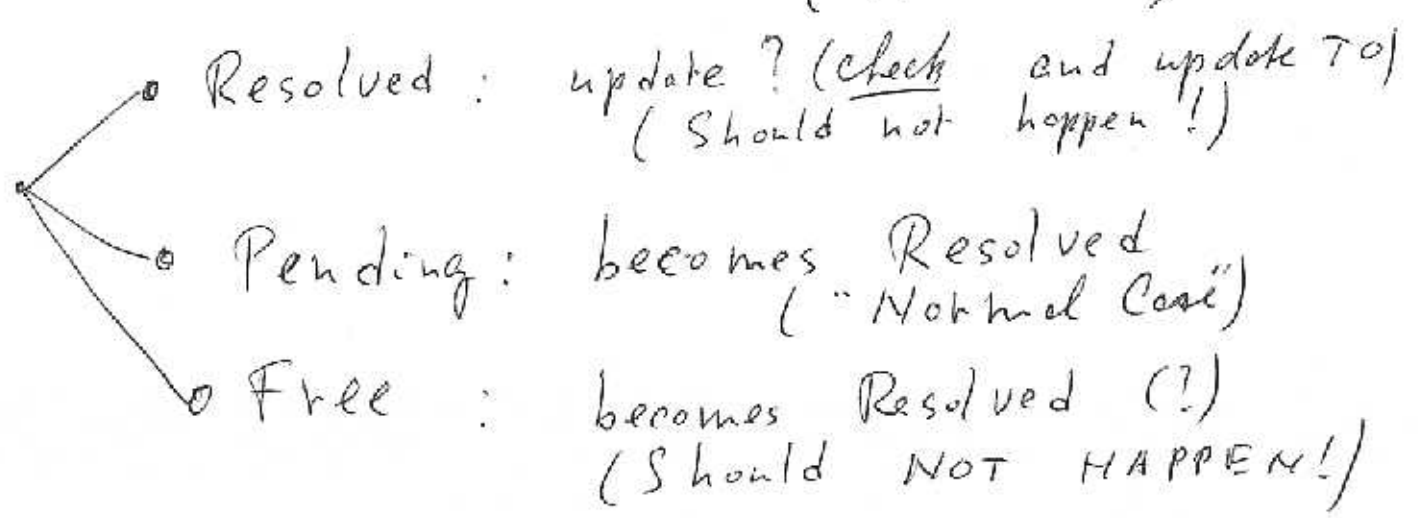 Resolved : update ? (check and update TO)
(Should not happen !)
Pending : becomes Resolved
("Normal Case")
Free : becomes Resolved (?)
(Should NOT HAPPEN!)